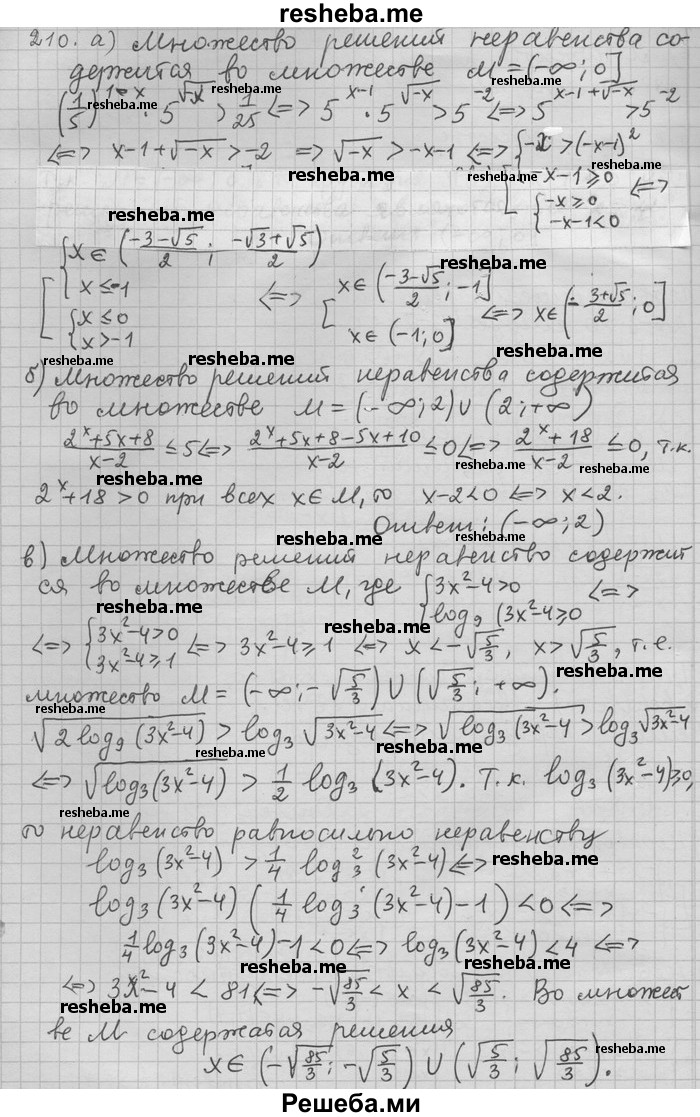 resheba.me
210. а) Множество решений неравенства со-
держится во множестве M = (-∞; 0]
(1/5)^(1-x) · 5^√-x > 1/25 <=> 5^(x-1) · 5^√-x > 5^-2 <=> 5^(x-1+√-x) > 5^-2
<=> x-1+√-x > -2 => √-x > -x-1 <=> [ { -x > (-x-1)^2
-x-1 ≥ 0
{ -x ≥ 0
-x-1 < 0 <=>
[ { x ∈ (-3-√5/2 ; -√3+√5/2)
x ≤ -1
{ x ≤ 0
x > -1
<=> [ x ∈ (-3-√5/2 ; -1]
x ∈ (-1; 0]
<=> x ∈ (- 3+√5/2 ; 0]
б) Множество решений неравенства содержится
во множестве M = (-∞; 2) ∪ (2; +∞)
2^x+5x+8/x-2 ≤ 5 <=> 2^x+5x+8-5x+10/x-2 ≤ 0 <=> 2^x+18/x-2 ≤ 0, т.к.
2^x+18 > 0 при всех x ∈ M, то x-2 < 0 <=> x < 2.
Ответ: (-∞; 2)
в) Множество решений неравенство содержит
ся во множестве M, где { 3x²-4 > 0
log₉ (3x²-4 ≥ 0 <=>
<=> { 3x²-4 > 0
3x²-4 ≥ 1 <=> 3x²-4 ≥ 1 <=> x < -√5/3, x > √5/3, т.е.
множество M = (-∞; -√5/3) ∪ (√5/3; +∞).
√2 log₉ (3x²-4) > log₃ √3x²-4 <=> √log₃ (3x²-4 > log₃ √3x²-4
<=> √log₃(3x²-4) > 1/2 log₃ (3x²-4). Т.к. log₃ (3x²-4) ≥ 0,
то неравенство равносильно неравенству
log₃ (3x²-4) > 1/4 log₃² (3x²-4) <=>
log₃ (3x²-4) (1/4 log₃ (3x²-4) - 1) < 0 <=>
1/4 log₃ (3x²-4) - 1 < 0 <=> log₃ (3x²-4) < 4 <=>
<=> 3x²-4 < 81 <=> -√85/3 < x < √85/3. Во множест
ве M содержатся решения
x ∈ (-√85/3; -√5/3) ∪ (√5/3; √85/3).
Решеба.ми